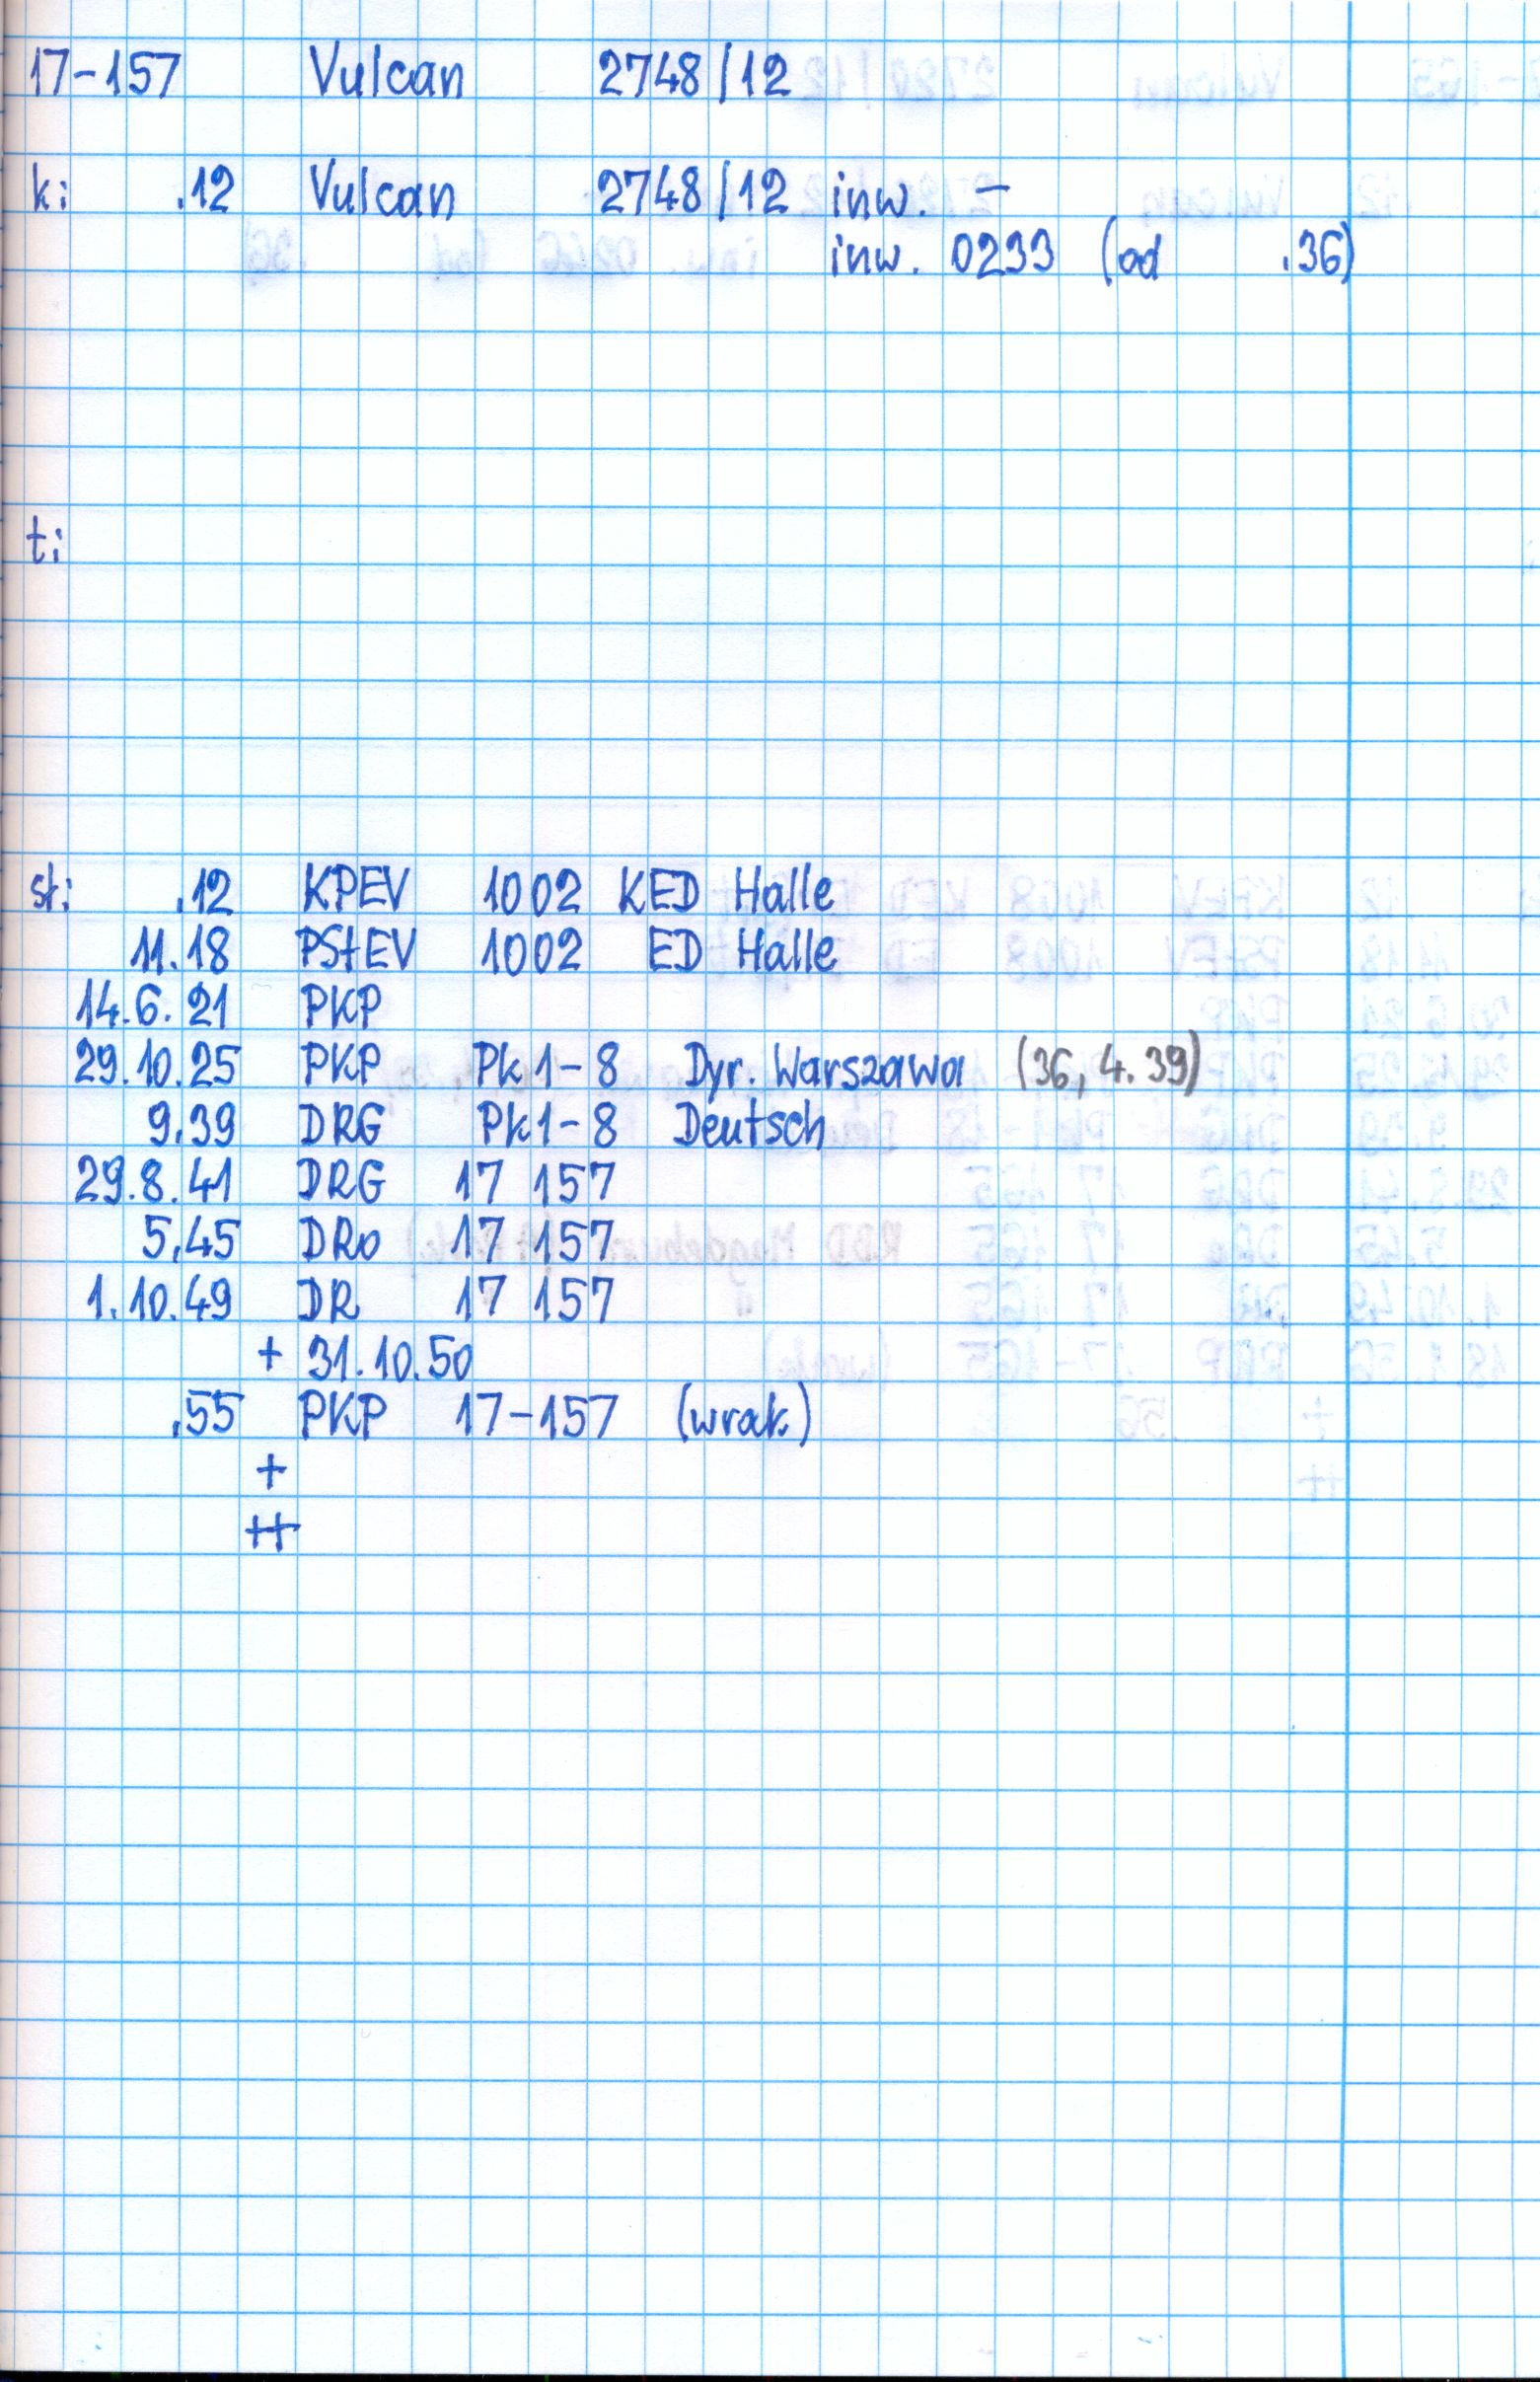 17-157 Vulcan 2748/12
k: .12 Vulcan 2748/12 inw. –
inw. 0233 (od .36)
t:
st: .12 KPEV 1002 KED Halle
11.18 PStEV 1002 ED Halle
14.6.21 PKP
29.10.25 PKP Pk1-8 Dyr. Warszawa (36, 4.39)
9.39 DRG Pk1-8 Deutsch
29.8.41 DRG 17 157
5.45 DRo 17 157
1.10.49 DR 17 157
+ 31.10.50
.55 PKP 17-157 (wrak)
+
++